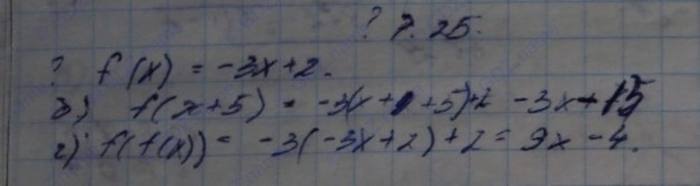 ? 7.25.
? f(x) = -3x+2.
б) f(x+5) = -3(x+ +5)+2 -3x+15
г) f(f(x)) = -3(-3x+2)+2 = 9x-4.